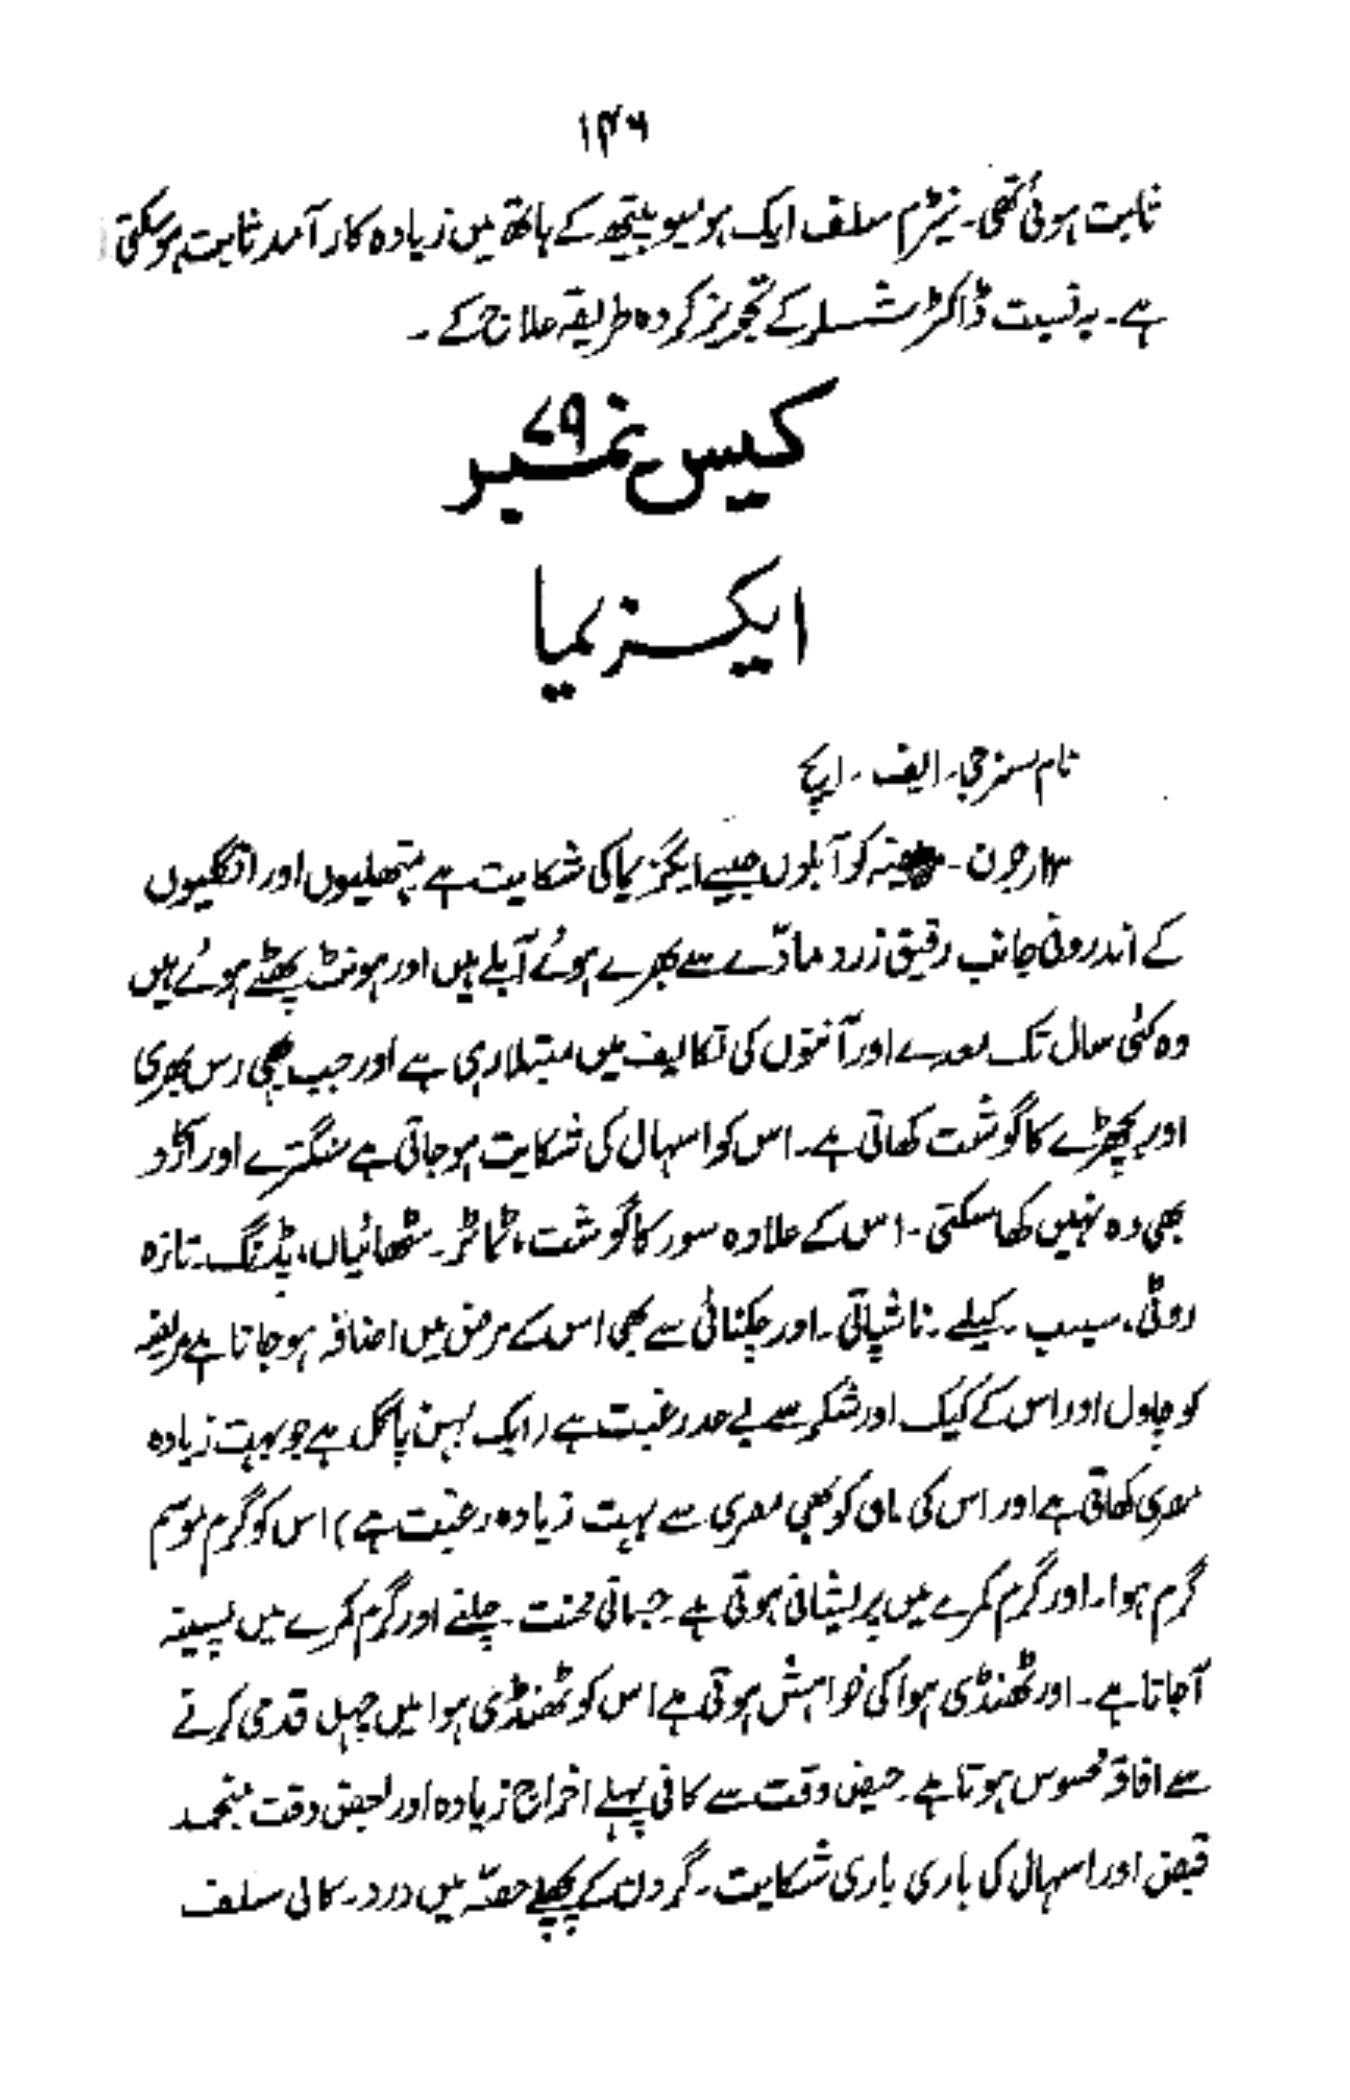 ۱۴۶
ثابت ہوئی تھی۔ نیٹرم سلف ایک ہومیوپیتھ کے ہاتھ میں زیادہ کار آمد ثابت ہو سکتی
ہے۔ بہ نسبت ڈاکٹر شسلر کے تجویز کردہ طریقہ علاج کے۔
کیس نمبر ۷۹
ایکزیما
نام مسز جی۔ ایف۔ ایچ
۱۳ جون۔ کو آبلوں جیسے ایگزیما کی شکایت ہے ہتھیلیوں اور انگلیوں
کے اندرونی جانب رقیق زرد مادّے سے بھرے ہوئے آبلے ہیں اور ہونٹ پھٹے ہوئے ہیں
وہ کئی سال تک معدے اور آنتوں کی تکالیف میں مبتلا رہی ہے اور جب بھی رس بھری
اور بچھڑے کا گوشت کھاتی ہے۔ اس کو اسہال کی شکایت ہو جاتی ہے سنگترے اور آڑو
بھی وہ نہیں کھا سکتی۔ اس کے علاوہ سور کا گوشت، ٹماٹر۔ مٹھائیاں، پڈنگ۔ تازہ
روٹی، سیب۔ کیلے۔ ناشپاتی۔ اور چکنائی سے بھی اس کے مرض میں اضافہ ہو جاتا ہے مریضہ
کو چاول اور اس کے کیک اور شکر سے بے حد رغبت ہے (ایک بہن پاگل ہے جو بہت زیادہ
مصری کھاتی ہے اور اس کی ماں کو بھی مصری سے بہت زیادہ رغبت ہے) اس کو گرم موسم
گرم ہوا۔ اور گرم کمرے میں پریشانی ہوتی ہے۔ جسمانی محنت۔ چلنے اور گرم کمرے میں پسینہ
آجاتا ہے۔ اور ٹھنڈی ہوا کی خواہش ہوتی ہے اس کو ٹھنڈی ہوا میں چہل قدمی کرنے
سے افاقہ محسوس ہوتا ہے۔ حیض وقت سے کافی پہلے اخراج زیادہ اور بعض وقت منجمد
قبض اور اسہال کی باری باری شکایت۔ گردن کے پچھلے حصّہ میں درد۔ کالی سلف